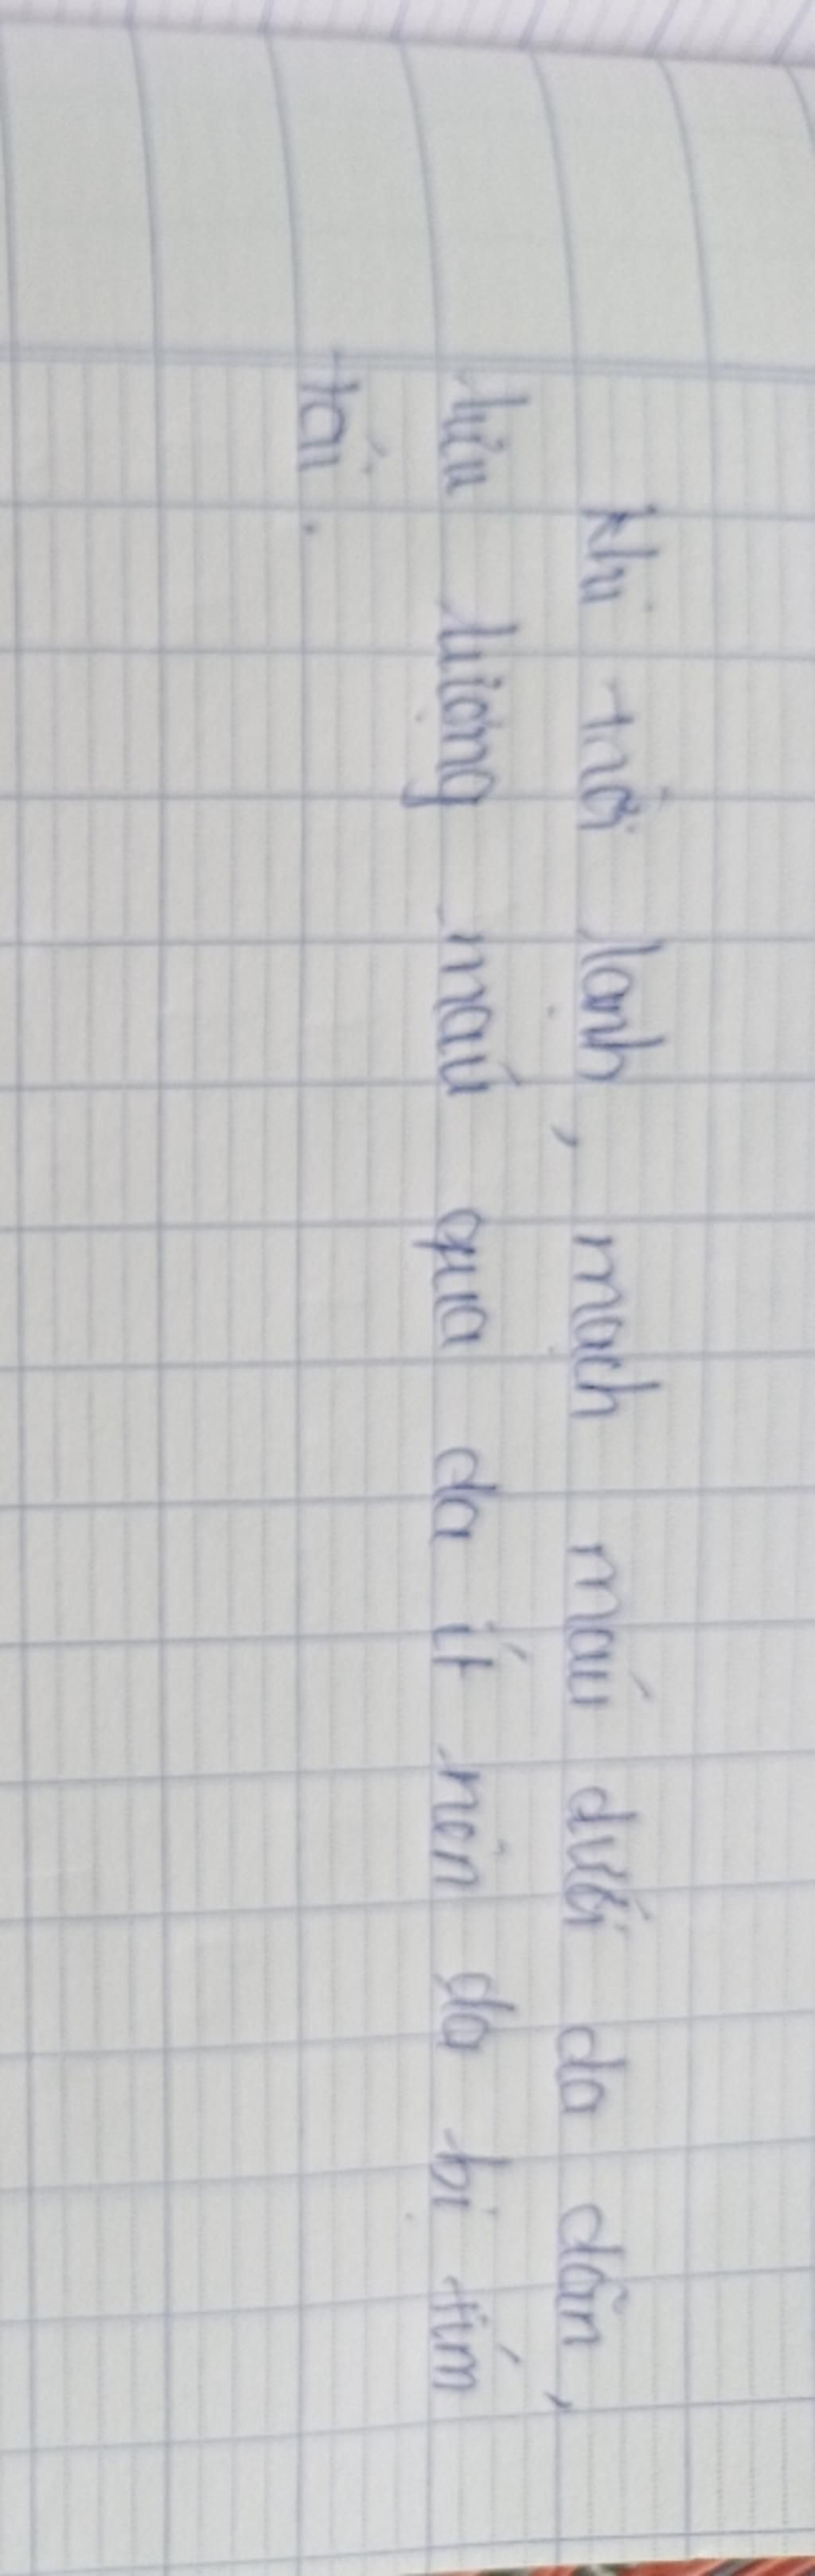 khi trời lạnh, mạch máu dưới da dãn,
lưu lượng máu qua da ít nên da bị tím
tái.